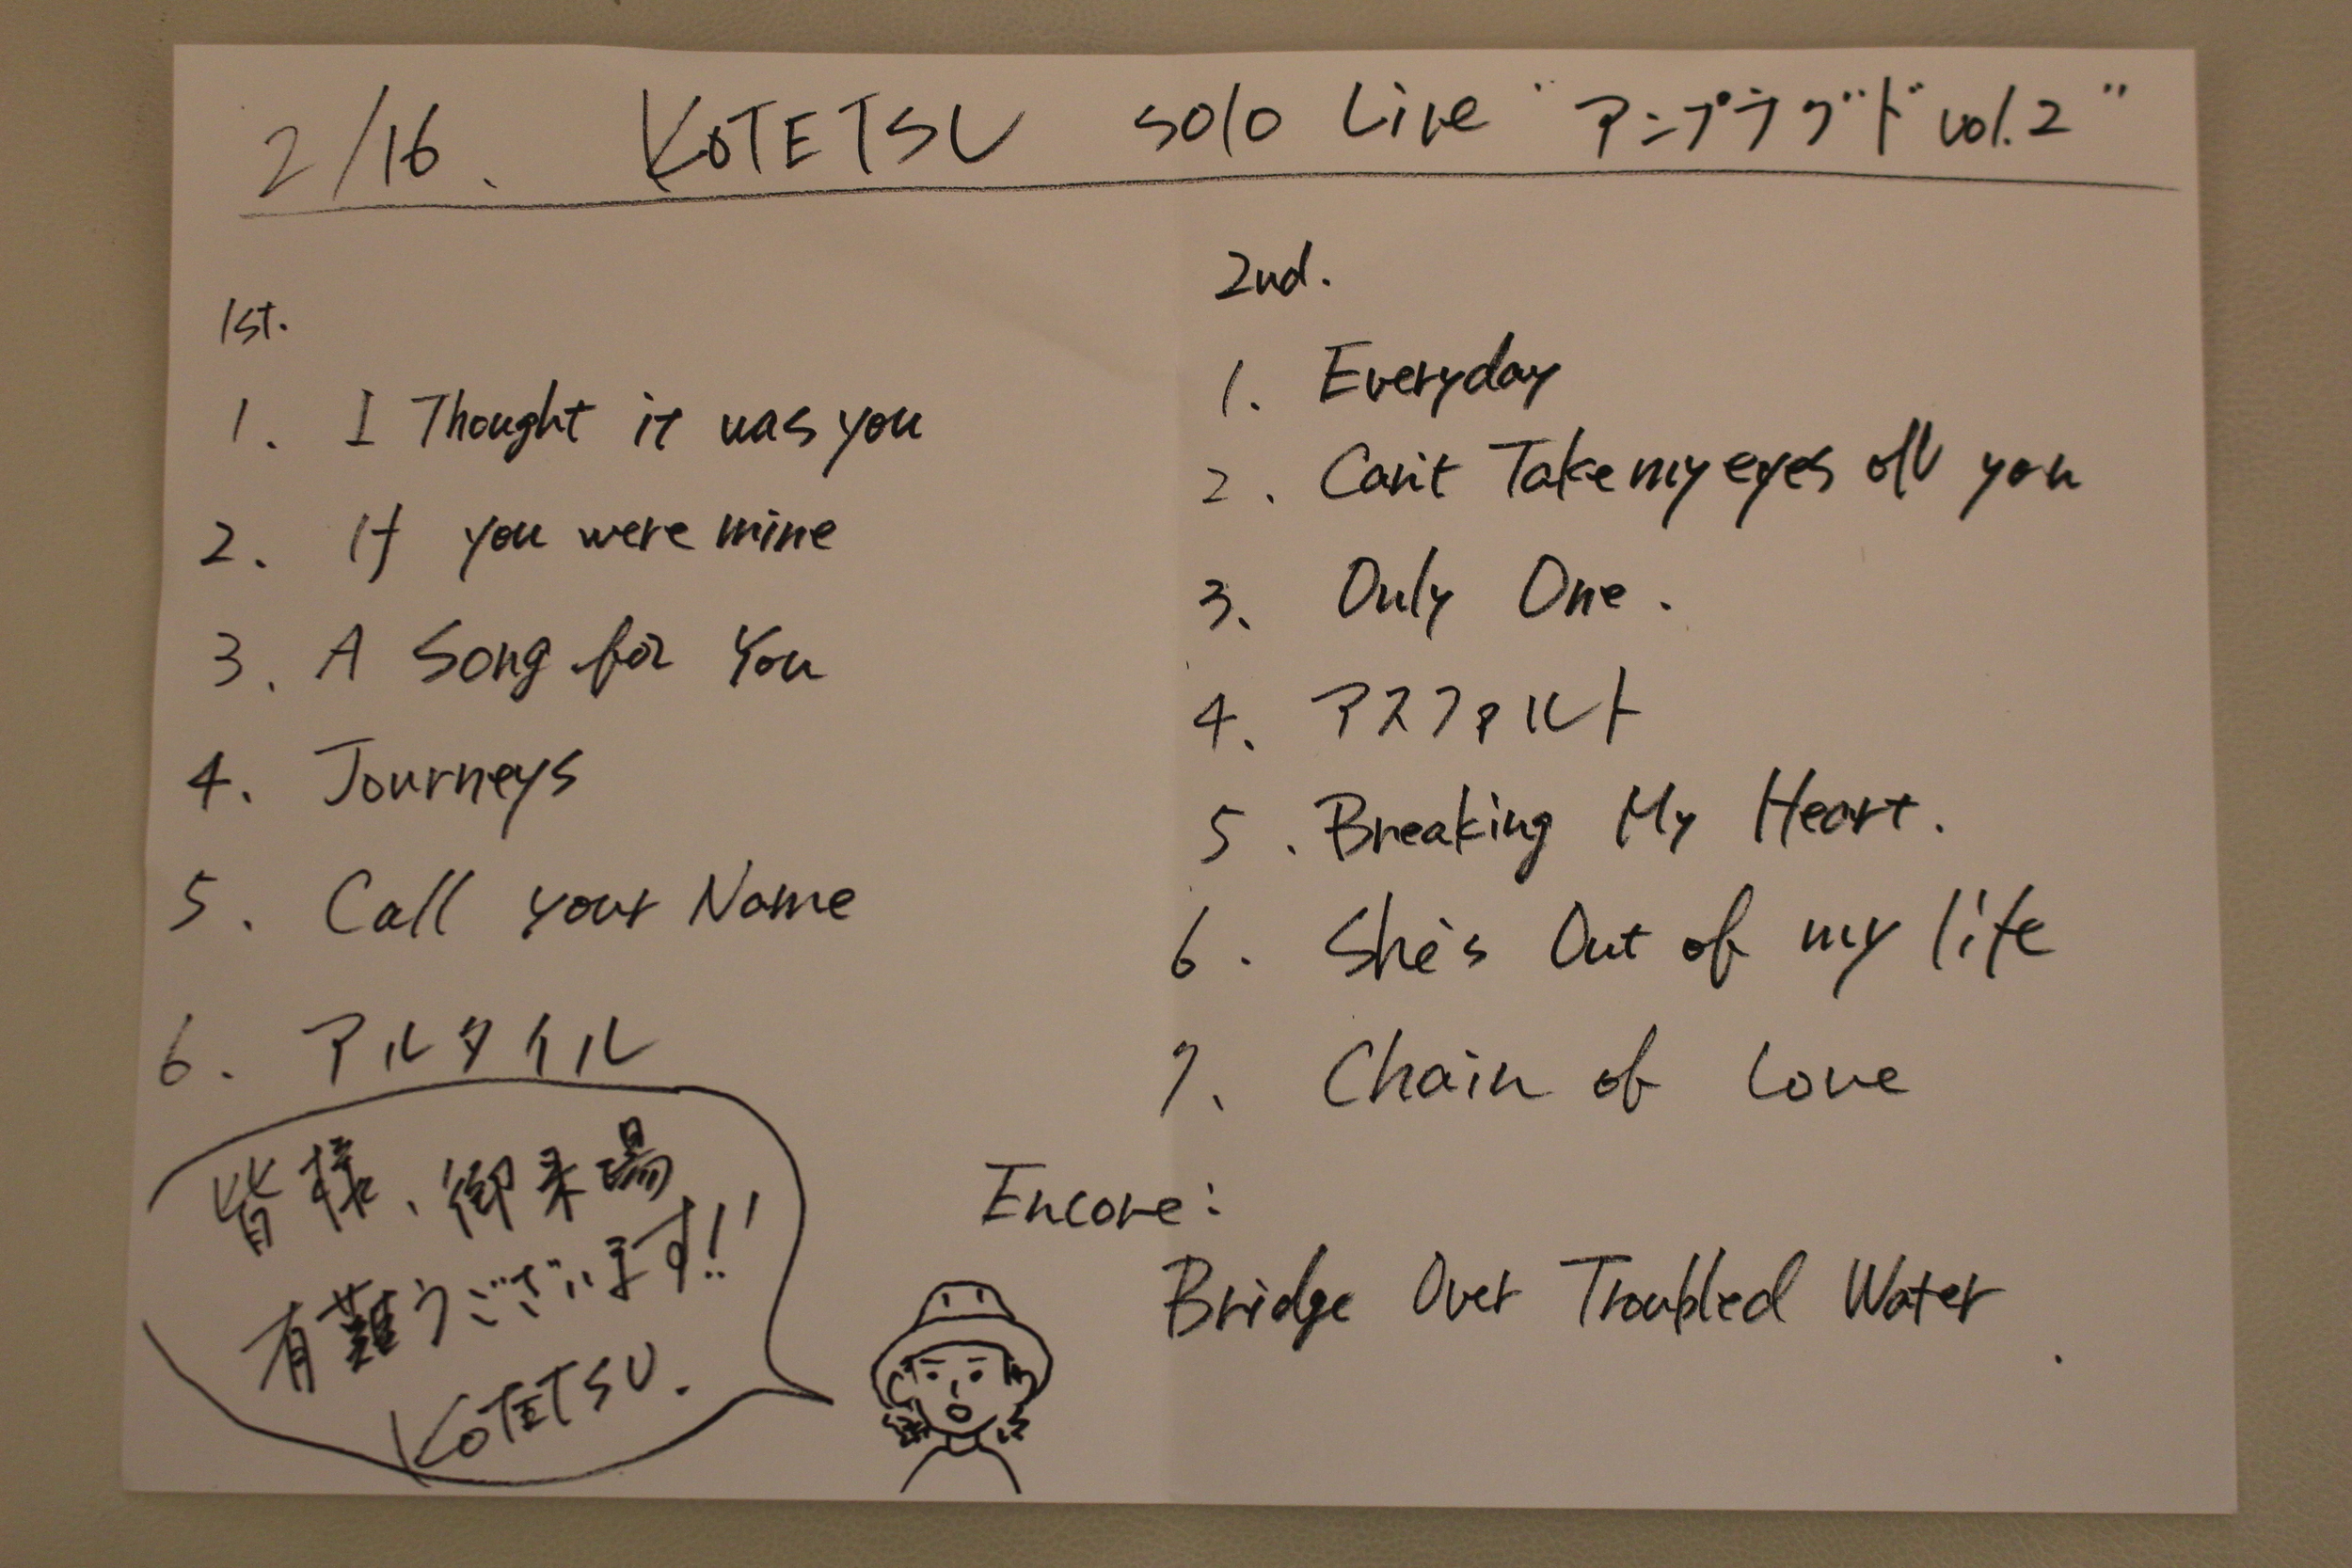 2/16. KOTETSU solo Live "アンプラグド vol.2"
1st.
1. I Thought it was you
2. If you were mine
3. A Song for You
4. Journeys
5. Call your Name
6. アルタイル
皆様、御来場
有難うございます!!
KOTETSU.
2nd.
1. Everyday
2. Can't Take my eyes off you
3. Only One.
4. アスファルト
5. Breaking My Heart.
6. She's Out of my life
7. Chain of Love
Encore:
Bridge Over Troubled Water.